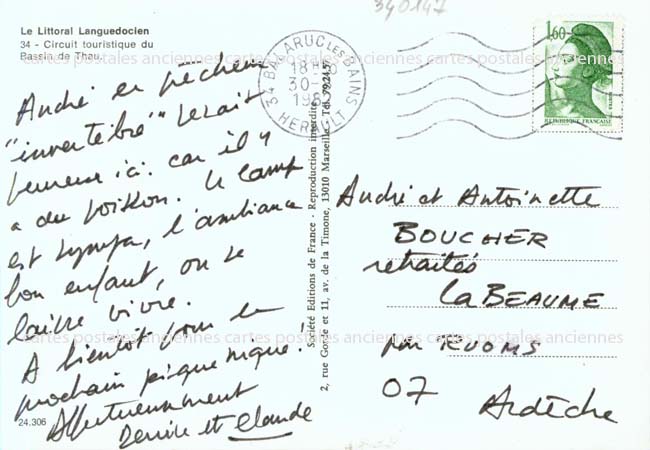 Le Littoral Languedocien
34 - Circuit touristique du
Bassin de Thau.
André en pêcheur
"invertébré" serait
heureux ici car il y
a du poisson. le camp
est sympa, l'ambiance
bon enfant, on se
laisse vivre.
A bientôt pour le
prochain pique nique!
Affectueusement
Denise et Claude
24.306
Société Editions de France - Reproduction interdite
2, rue Goude et 11, av. de la Timone, 13010 Marseille. Tél. 79.24.5
340147
34 BALARUC LES BAINS
18H
30-
19
HERAULT
1,60
REPUBLIQUE FRANCAISE
André et Antoinette
BOUCHER
retraités
La BEAUME
par RUOMS
07
Ardèche
cartes postales anciennes cartes postales anciennes cartes postales anciennes
cartes postales anciennes cartes postales anciennes cartes postales anciennes